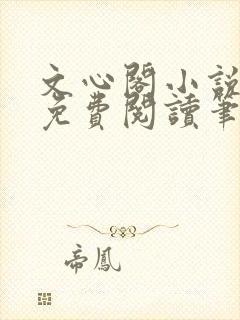 文心閣小說
免費閱讀筆
帝鳳